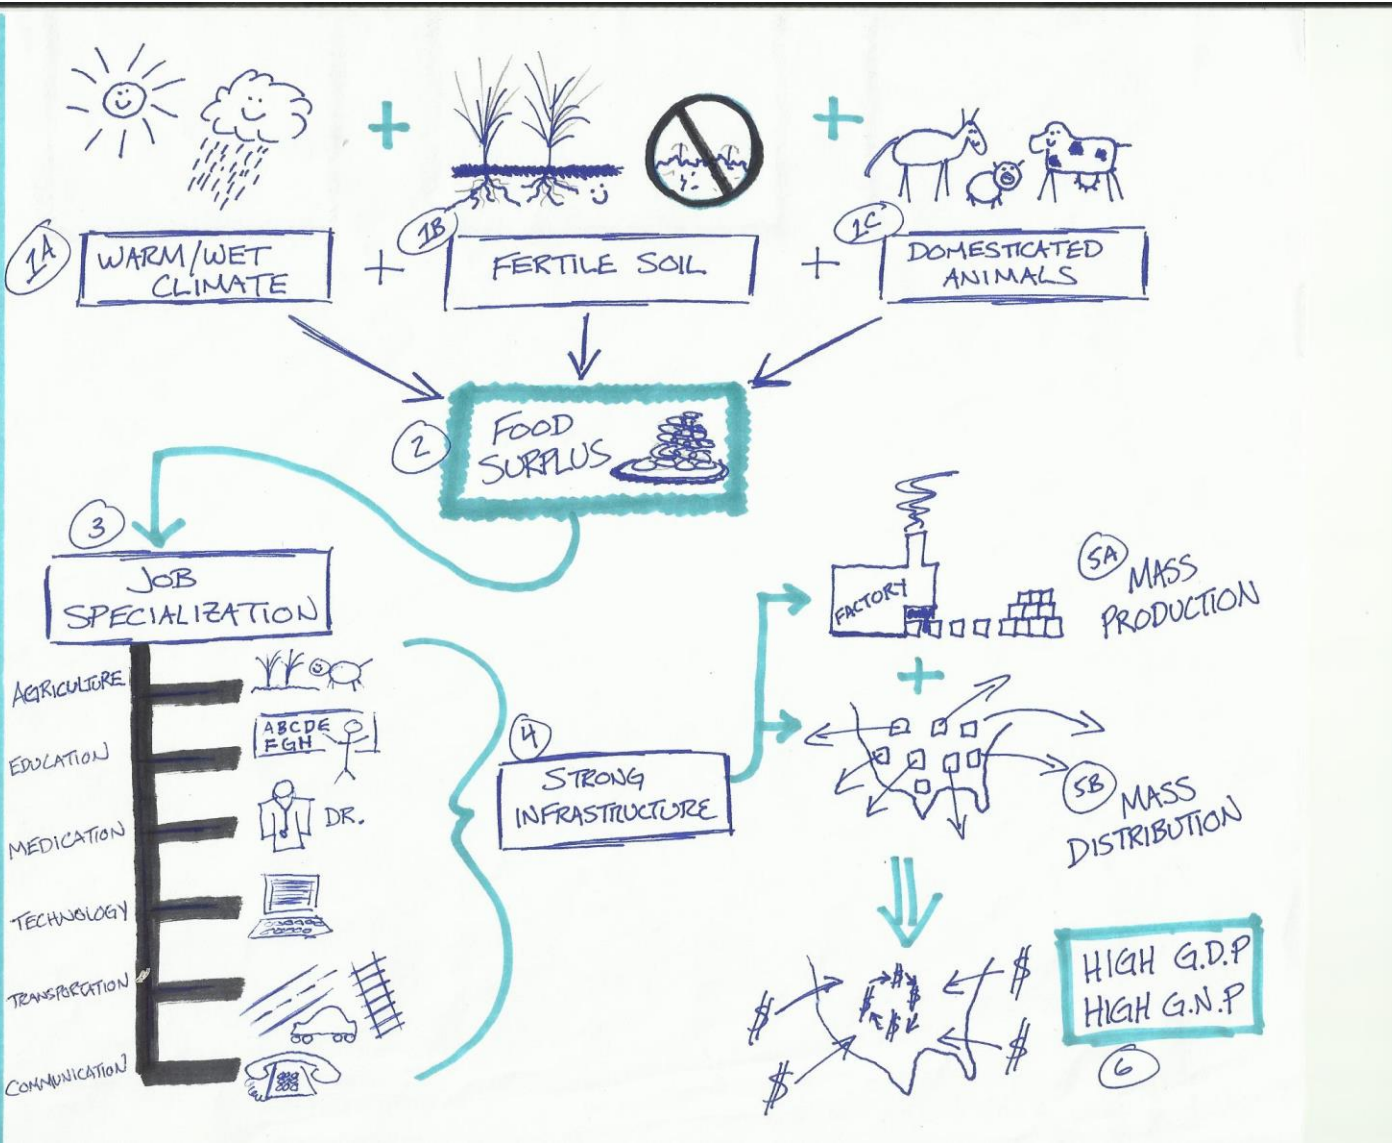 1A
WARM/WET
CLIMATE
1B
FERTILE SOIL
1C
DOMESTICATED
ANIMALS
2
FOOD
SURPLUS
3
JOB
SPECIALIZATION
AGRICULTURE
EDUCATION
ABCDE
FGH
MEDICATION
DR.
TECHNOLOGY
TRANSPORTATION
COMMUNICATION
4
STRONG
INFRASTRUCTURE
FACTORY
5A
MASS
PRODUCTION
5B
MASS
DISTRIBUTION
$ $ $ $ $
$ $ $ $
HIGH G.D.P
HIGH G.N.P
6